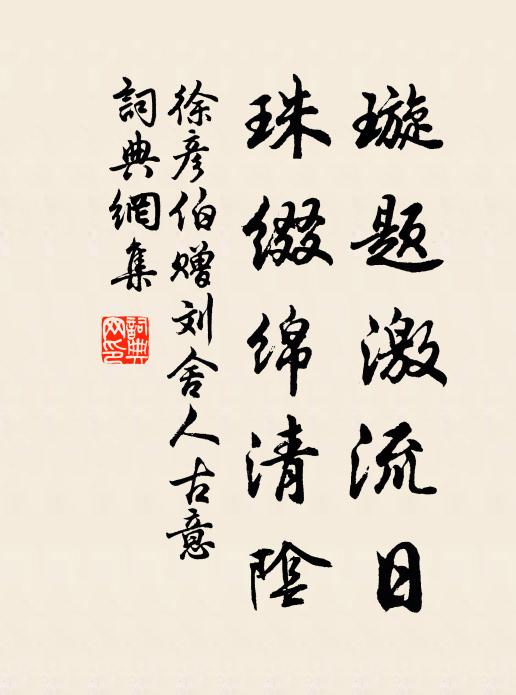 璇题激流日
珠缀绵清陰
徐彦伯赠刘舍人古意
詞典網集
詞典网印